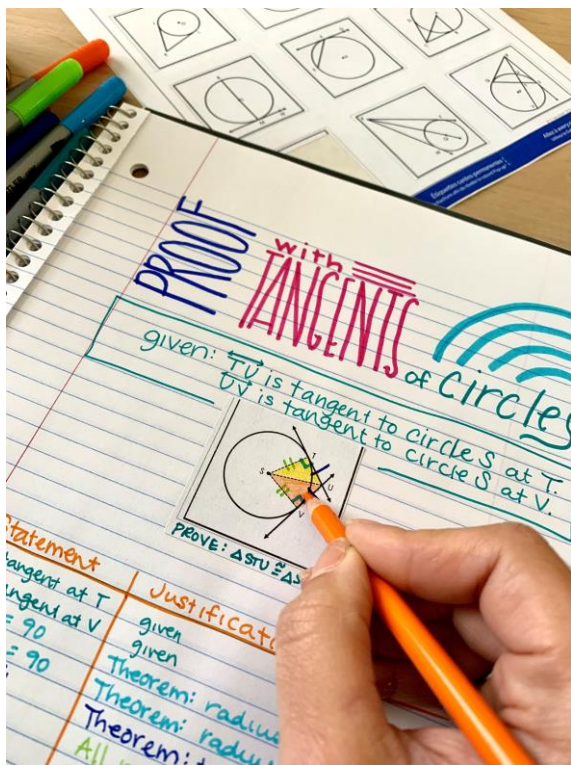 PROOF
with
TANGENTS
of circles
given: TU is tangent to circle S at T.
UV is tangent to circle S at V.
S
T
U
V
PROVE: △STU ≅ △S
Statement
Justificati
tangent at T
given
tangent at V
given
= 90
Theorem: radius
= 90
Theorem: radiu
Theorem:
All
Étiquettes cartes permanentes